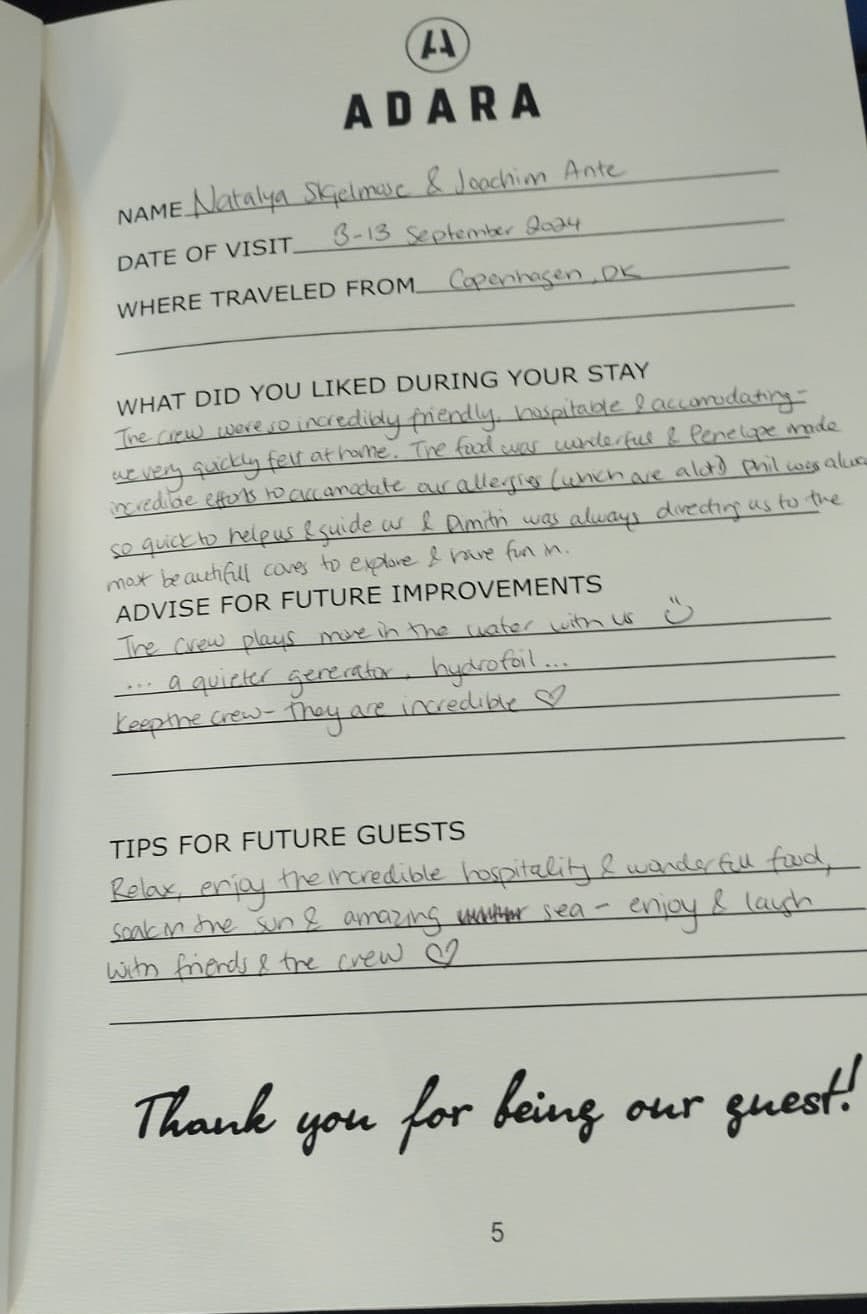 ADARA
NAME Natalya Skjelmose & Joachim Ante
DATE OF VISIT 3-13 September 2024
WHERE TRAVELED FROM Copenhagen, DK
WHAT DID YOU LIKED DURING YOUR STAY
The crew were so incredibly friendly, hospitable & accomodating-
we very quickly felt at home. The food was wunderfull & Penelope made
incredible efforts to accomodate our allergies (which are alot) Phil was
so quick to help us & guide us & Dimitri was always directing us to the
most beautifull caves to explore & have fun in.
ADVISE FOR FUTURE IMPROVEMENTS
The crew plays more in the water with us
... a quieter generator, hydrofoil...
Keep the crew - They are incredible ♡
TIPS FOR FUTURE GUESTS
Relax, enjoy the incredible hospitality & wonderfull food,
soak in the sun & amazing sea - enjoy & laugh
with friends & the crew ♡
Thank you for being our guest!
5